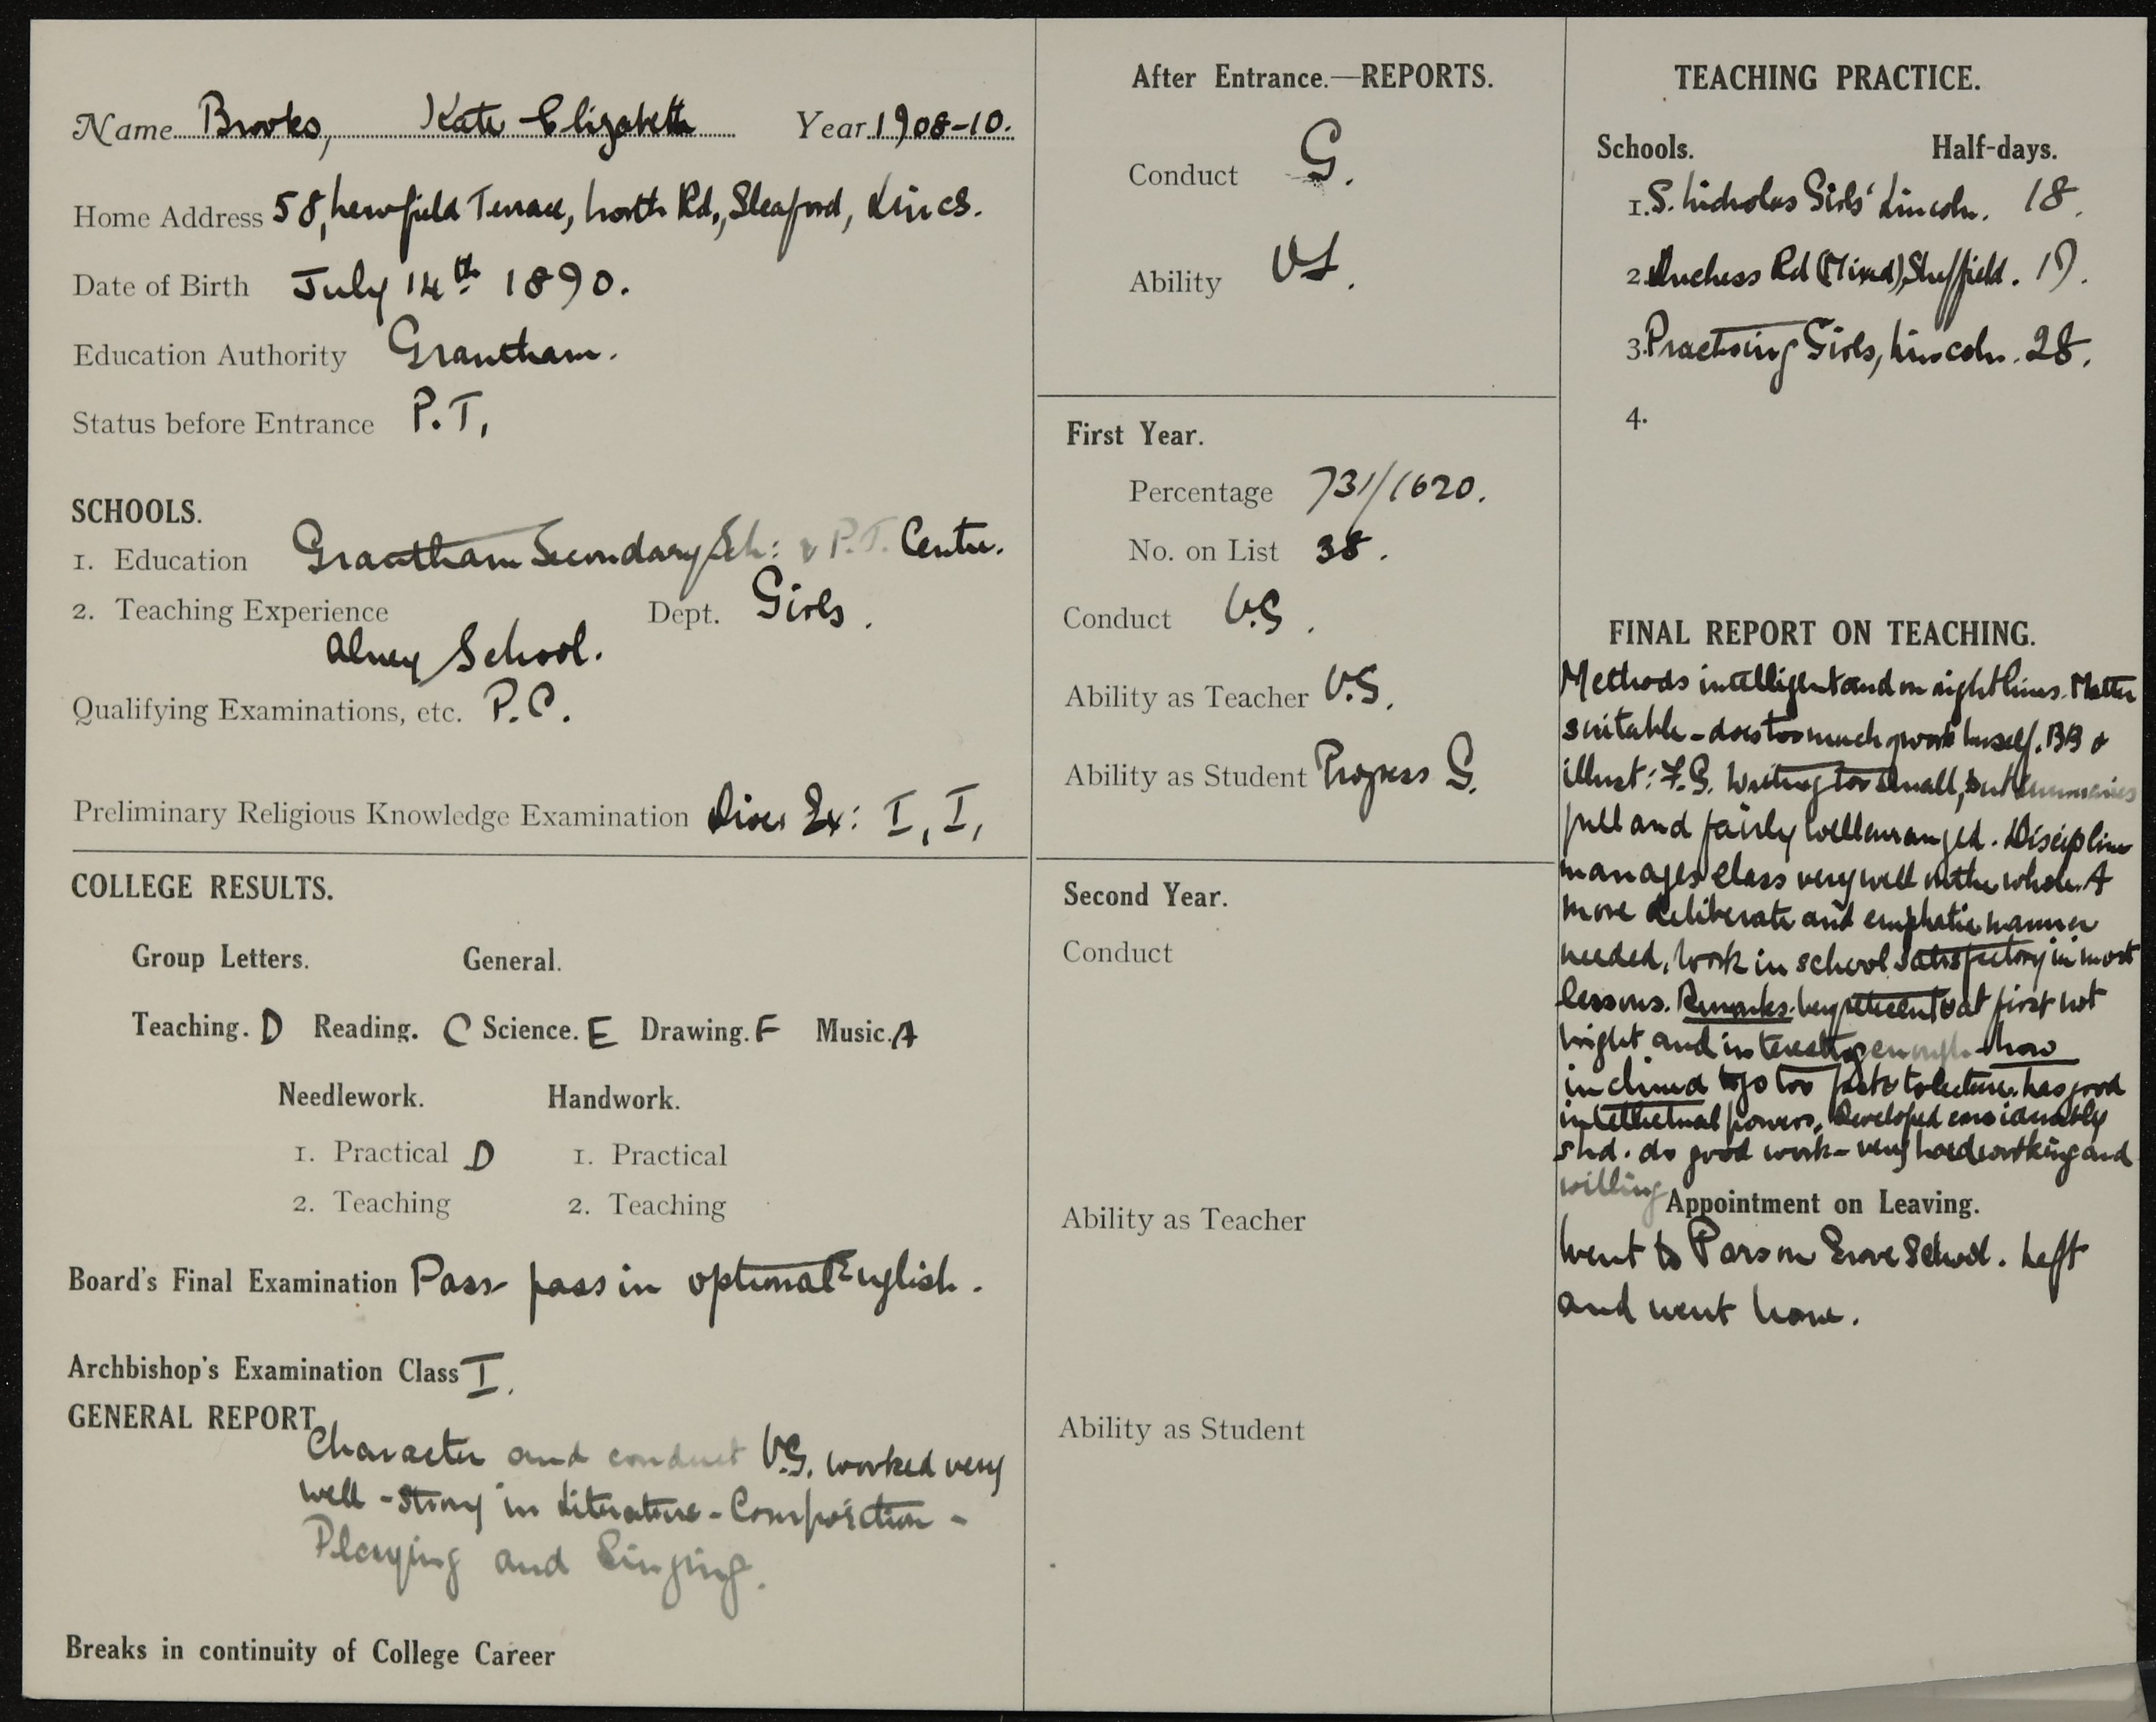 Name Brooks, Kate Elizabeth Year 1908-10.
Home Address 58, Newfield Terrace, North Rd., Sleaford, Lincs.
Date of Birth July 14th 1890.
Education Authority Grantham.
Status before Entrance P.T.
SCHOOLS.
1. Education Grantham Secondary Sch: & P.T. Centre.
2. Teaching Experience Dept. Girls.
School.
Qualifying Examinations, etc. P.C.
Preliminary Religious Knowledge Examination Dioc. Ex: I, I,
COLLEGE RESULTS.
Group Letters. General.
Teaching. D Reading. C Science. E Drawing. F Music. A
Needlework. Handwork.
1. Practical D 1. Practical
2. Teaching 2. Teaching
Board's Final Examination Pass pass in optional English.
Archbishop's Examination Class I.
GENERAL REPORT
Character and conduct V.G. worked very
well - strong in Literature - Composition -
Playing and Singing.
Breaks in continuity of College Career
After Entrance.—REPORTS.
Conduct G.
Ability
First Year.
Percentage 731/1620.
No. on List 38.
Conduct V.G.
Ability as Teacher V.G.
Ability as Student Progress G.
Second Year.
Conduct
Ability as Teacher
Ability as Student
TEACHING PRACTICE.
Schools. Half-days.
1. S. Nicholas Girls' Lincoln. 18.
2. Duchess Rd (Mixed), Sheffield. 17.
3. Practising Girls, Lincoln. 28.
4.
FINAL REPORT ON TEACHING.
Methods intelligent and on right lines. Matter
suitable - does too much of work herself. BB &
illust: F.G. Writing too small, but summaries
full and fairly well arranged. Discipline
manages class very well on the whole. A
more deliberate and emphatic manner
needed, work in school satisfactory in most
lessons. Remarks. Very reticent at first not
bright and interesting enough - how
inclined to go too fast & to lecture. has good
intellectual powers. Developed considerably
shd. do good work - very hardworking and
willing
Appointment on Leaving.
Went to Parson Drove School. Left
and went home.